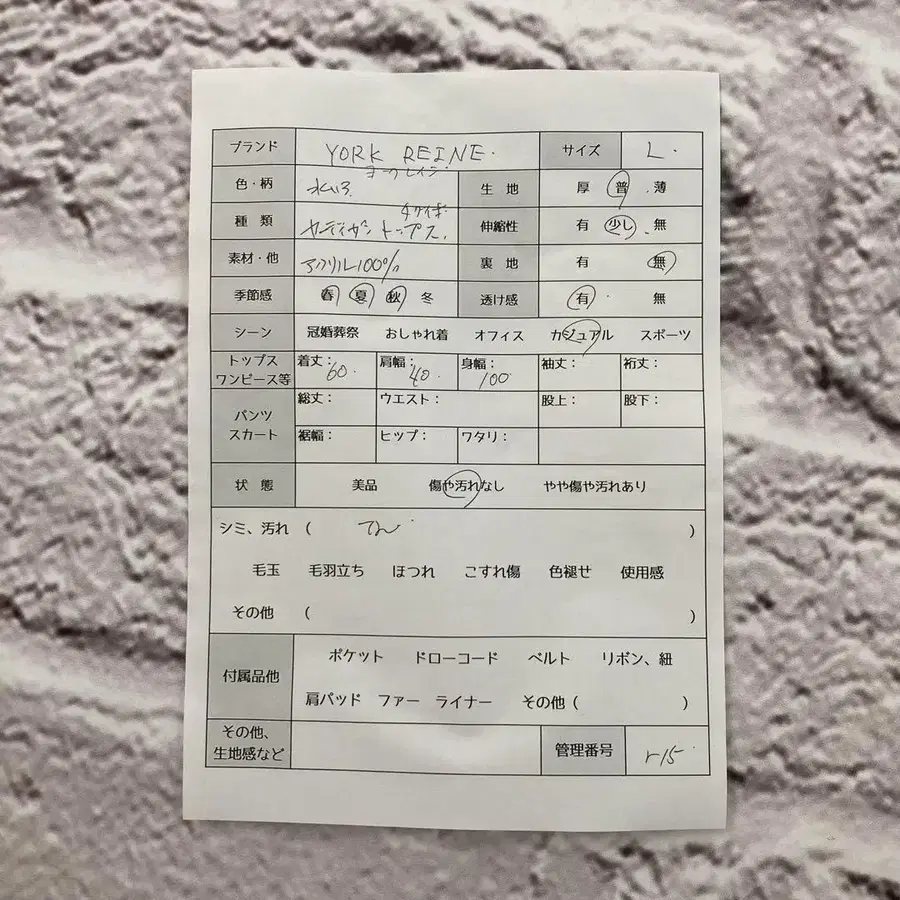 ブランド YORK REINE. サイズ L.
ヨークレイン
色・柄 水いろ 生地 厚 普 薄
種類 カーディガン トップス. 伸縮性 有 少し 無
素材・他 アクリル100% 裏地 有 無
季節感 春 夏 秋 冬 透け感 有 無
シーン 冠婚葬祭 おしゃれ着 オフィス カジュアル スポーツ
トップス 着丈：60. 肩幅：40. 身幅：100 袖丈： 裄丈：
ワンピース等
パンツ 総丈： ウエスト： 股上： 股下：
スカート 裾幅： ヒップ： ワタリ：
状態 美品 傷や汚れなし やや傷や汚れあり
シミ、汚れ ( )
毛玉 毛羽立ち ほつれ こすれ傷 色褪せ 使用感
その他 ( )
付属品他 ポケット ドローコード ベルト リボン、紐
肩パッド ファー ライナー その他 ( )
その他、
生地感など 管理番号 r15